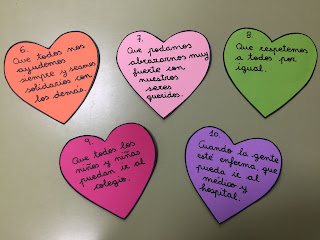 6.
Que todos nos
ayudemos
siempre y seamos
solidarios con
los demás.
7.
Que podamos
abrazarnos muy
fuerte con
nuestros
seres
queridos.
8.
Que respetemos
a todos por
igual.
9.
Que todos los
niños y niñas
puedan ir al
colegio.
10.
Cuando la gente
esté enferma, que
pueda ir al
médico y
hospital.